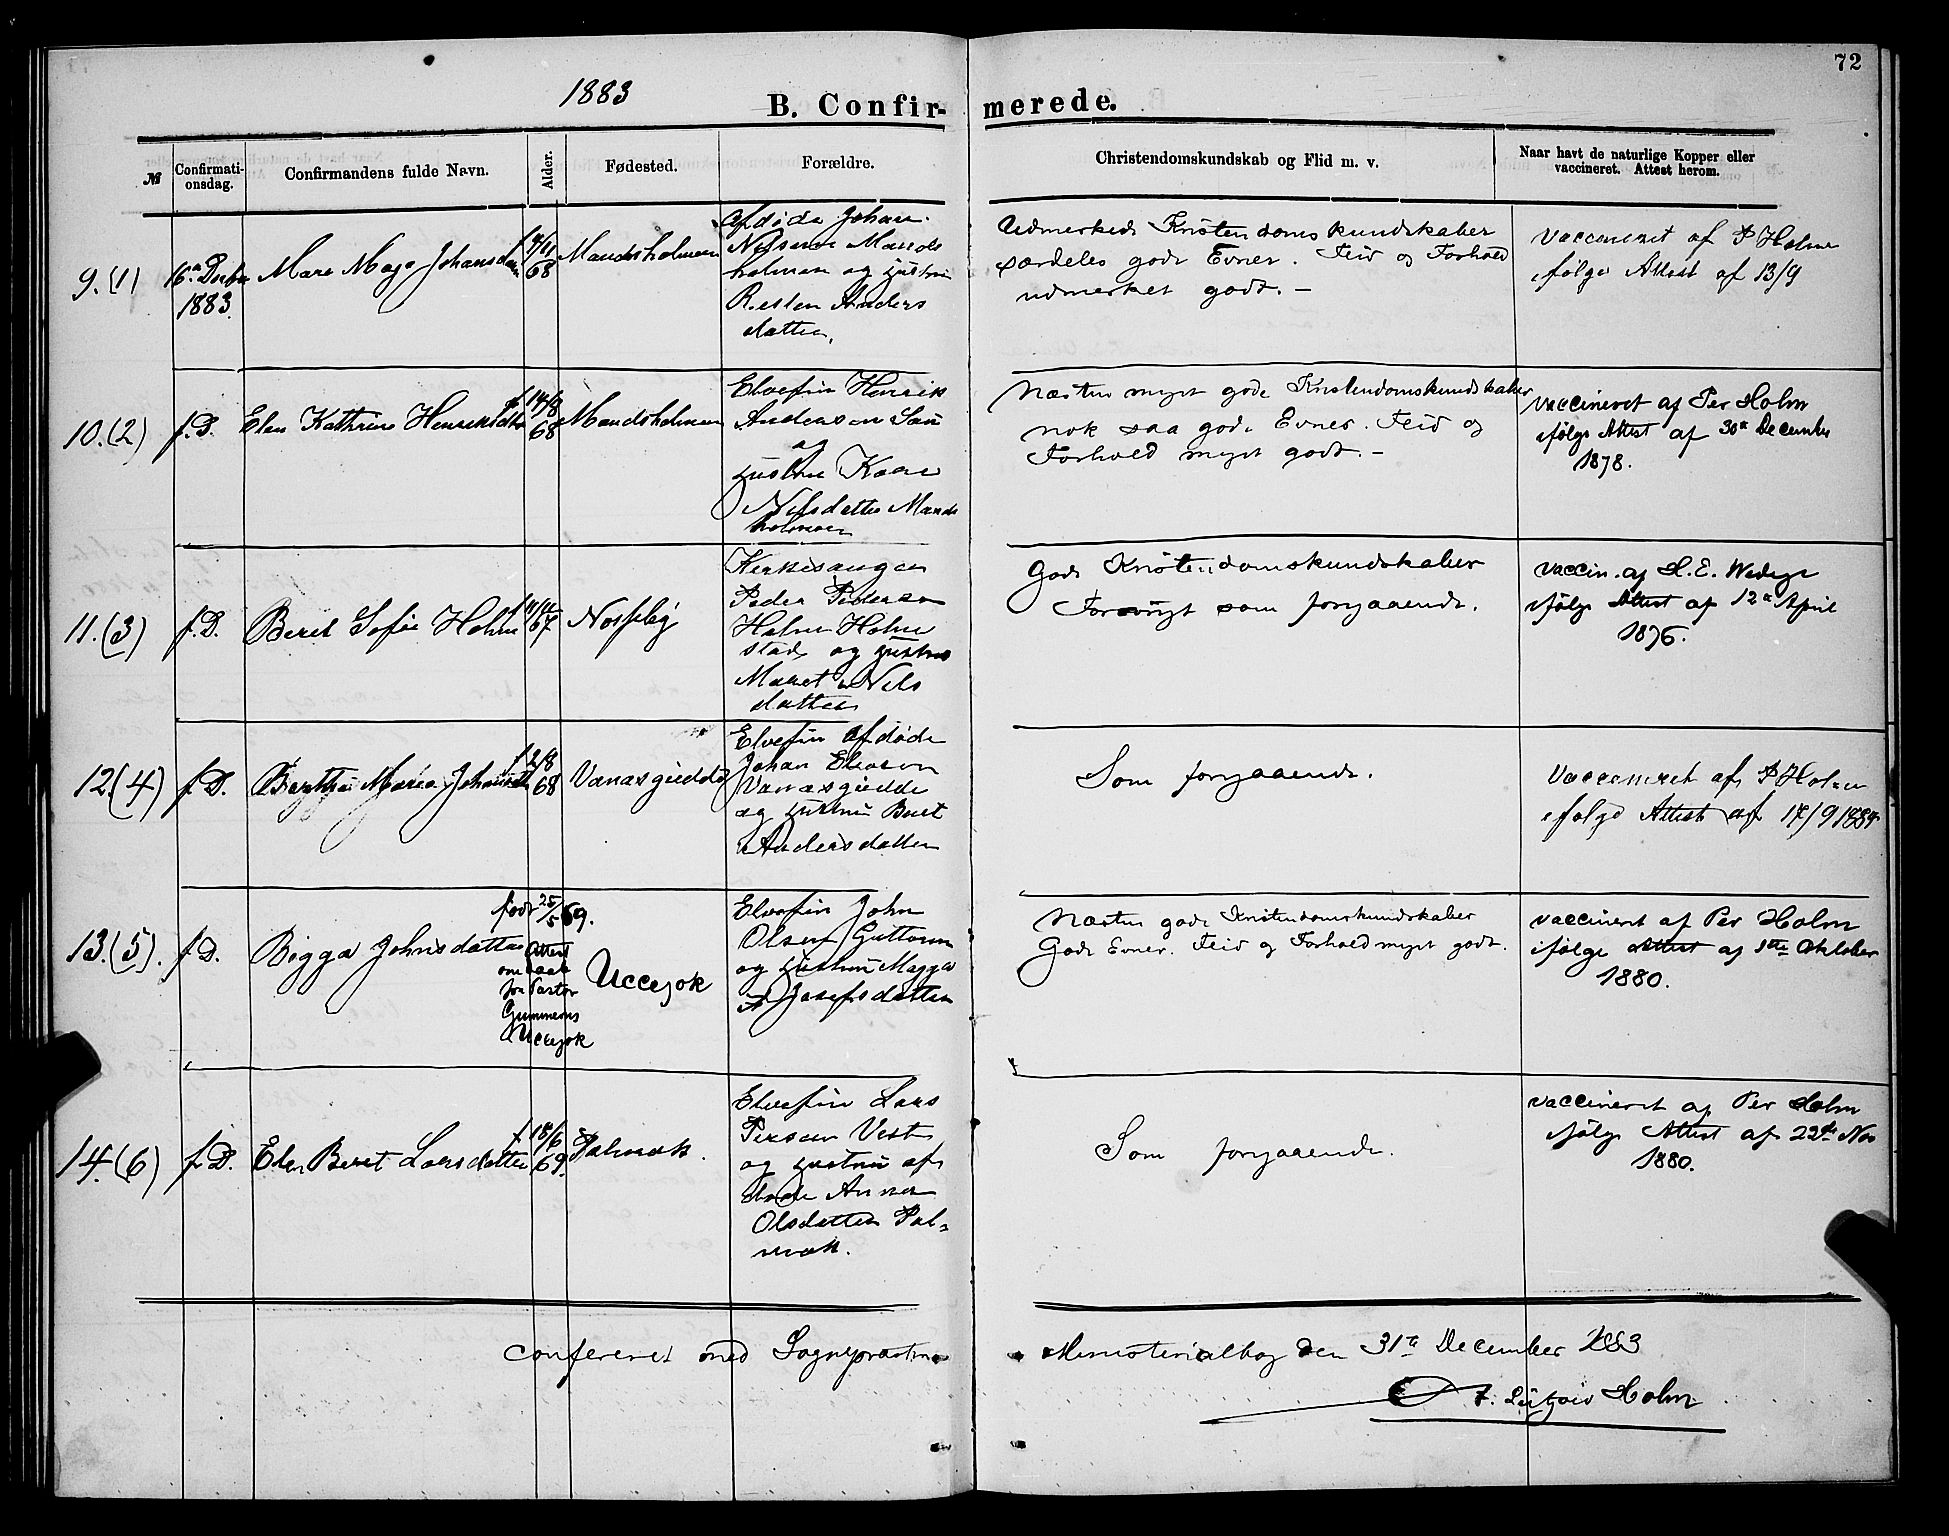 72
1883
B. Confirmerede.
№
Confirmationsdag.
Confirmandens fulde Navn.
Alder.
Fødested.
Forældre.
Christendomskundskab og Flid m. v.
Naar havt de naturlige Kopper eller vaccineret. Attest herom.
9.(1)
16de Decbr
1883.
Mare Johansdatter
68
Mandsholmen
Afdøde Johan
Nilsen Mands
holmen og Hustru
Anders
datter.
Udmerkede Kristendomskundskaber
særdeles gode Evner. Flid og Forhold
udmerket godt. –
Vaccineret af P Holm
ifølge Attest af 13/9
10.(2)
f. D.
Elen Kathrine Henriksdtr
f. 14/8
68
Mandsholmen
Elvefin Henrik
Andersen
og
Hustru
Nilsdatter Mands
holmen
Næsten meget gode Kristendomskundskaber
nok saa gode Evner. Flid og
Forhold meget godt. –
Vaccineret af Per Holm
ifølge Attest af 30te December
1878.
11.(3)
f. D.
Beret Sofie Holm
67
Nosseby
Kirkesanger
Peder Pedersen
Holm Holme
stad og Hustru
Maret Nils
datter
Gode Kristendomskundskaber
Forøvrigt som foregaaende.
Vaccin. af H. E. Wadege
ifølge Attest af 12te April
1876.
12.(4)
f. D.
Berthe Maria Johansdtr
f. 2/8
68
Vanasgiedde
Elvefin afdøde
Johan
Vanasgiedde
og Hustru Beret
Andersdatter
Som foregaaende.
Vaccineret af P Holm
ifølge Attest af 17/9
13.(5).
f. D.
Bigga Johnsdatter
født 25/5 69.
Attest
om Daab
fra Pastor
Uccejok
Uccejok
Elvefin John
Olsen Guttorm
og Hustru Magga
Josefsdatter
Næsten gode Kristendomskundskaber
Gode Evner. Flid og Forhold meget godt.
vaccineret af Per Holm
ifølge Attest af 1ste Oktober
1880.
14.(6)
f. D.
Elen Beret Larsdatter
f. 18/6
69.
Polmak.
Elvefin Lars
Persen Vest
og Hustru af
døde Anna
Olsdatter Pol=
mak.
Som foregaaende.
vaccineret af Per Holm
ifølge Attest af 22de Nov
1880.
Confereret med Sognepræstens Ministerialbog den 31te December 1883
Holm